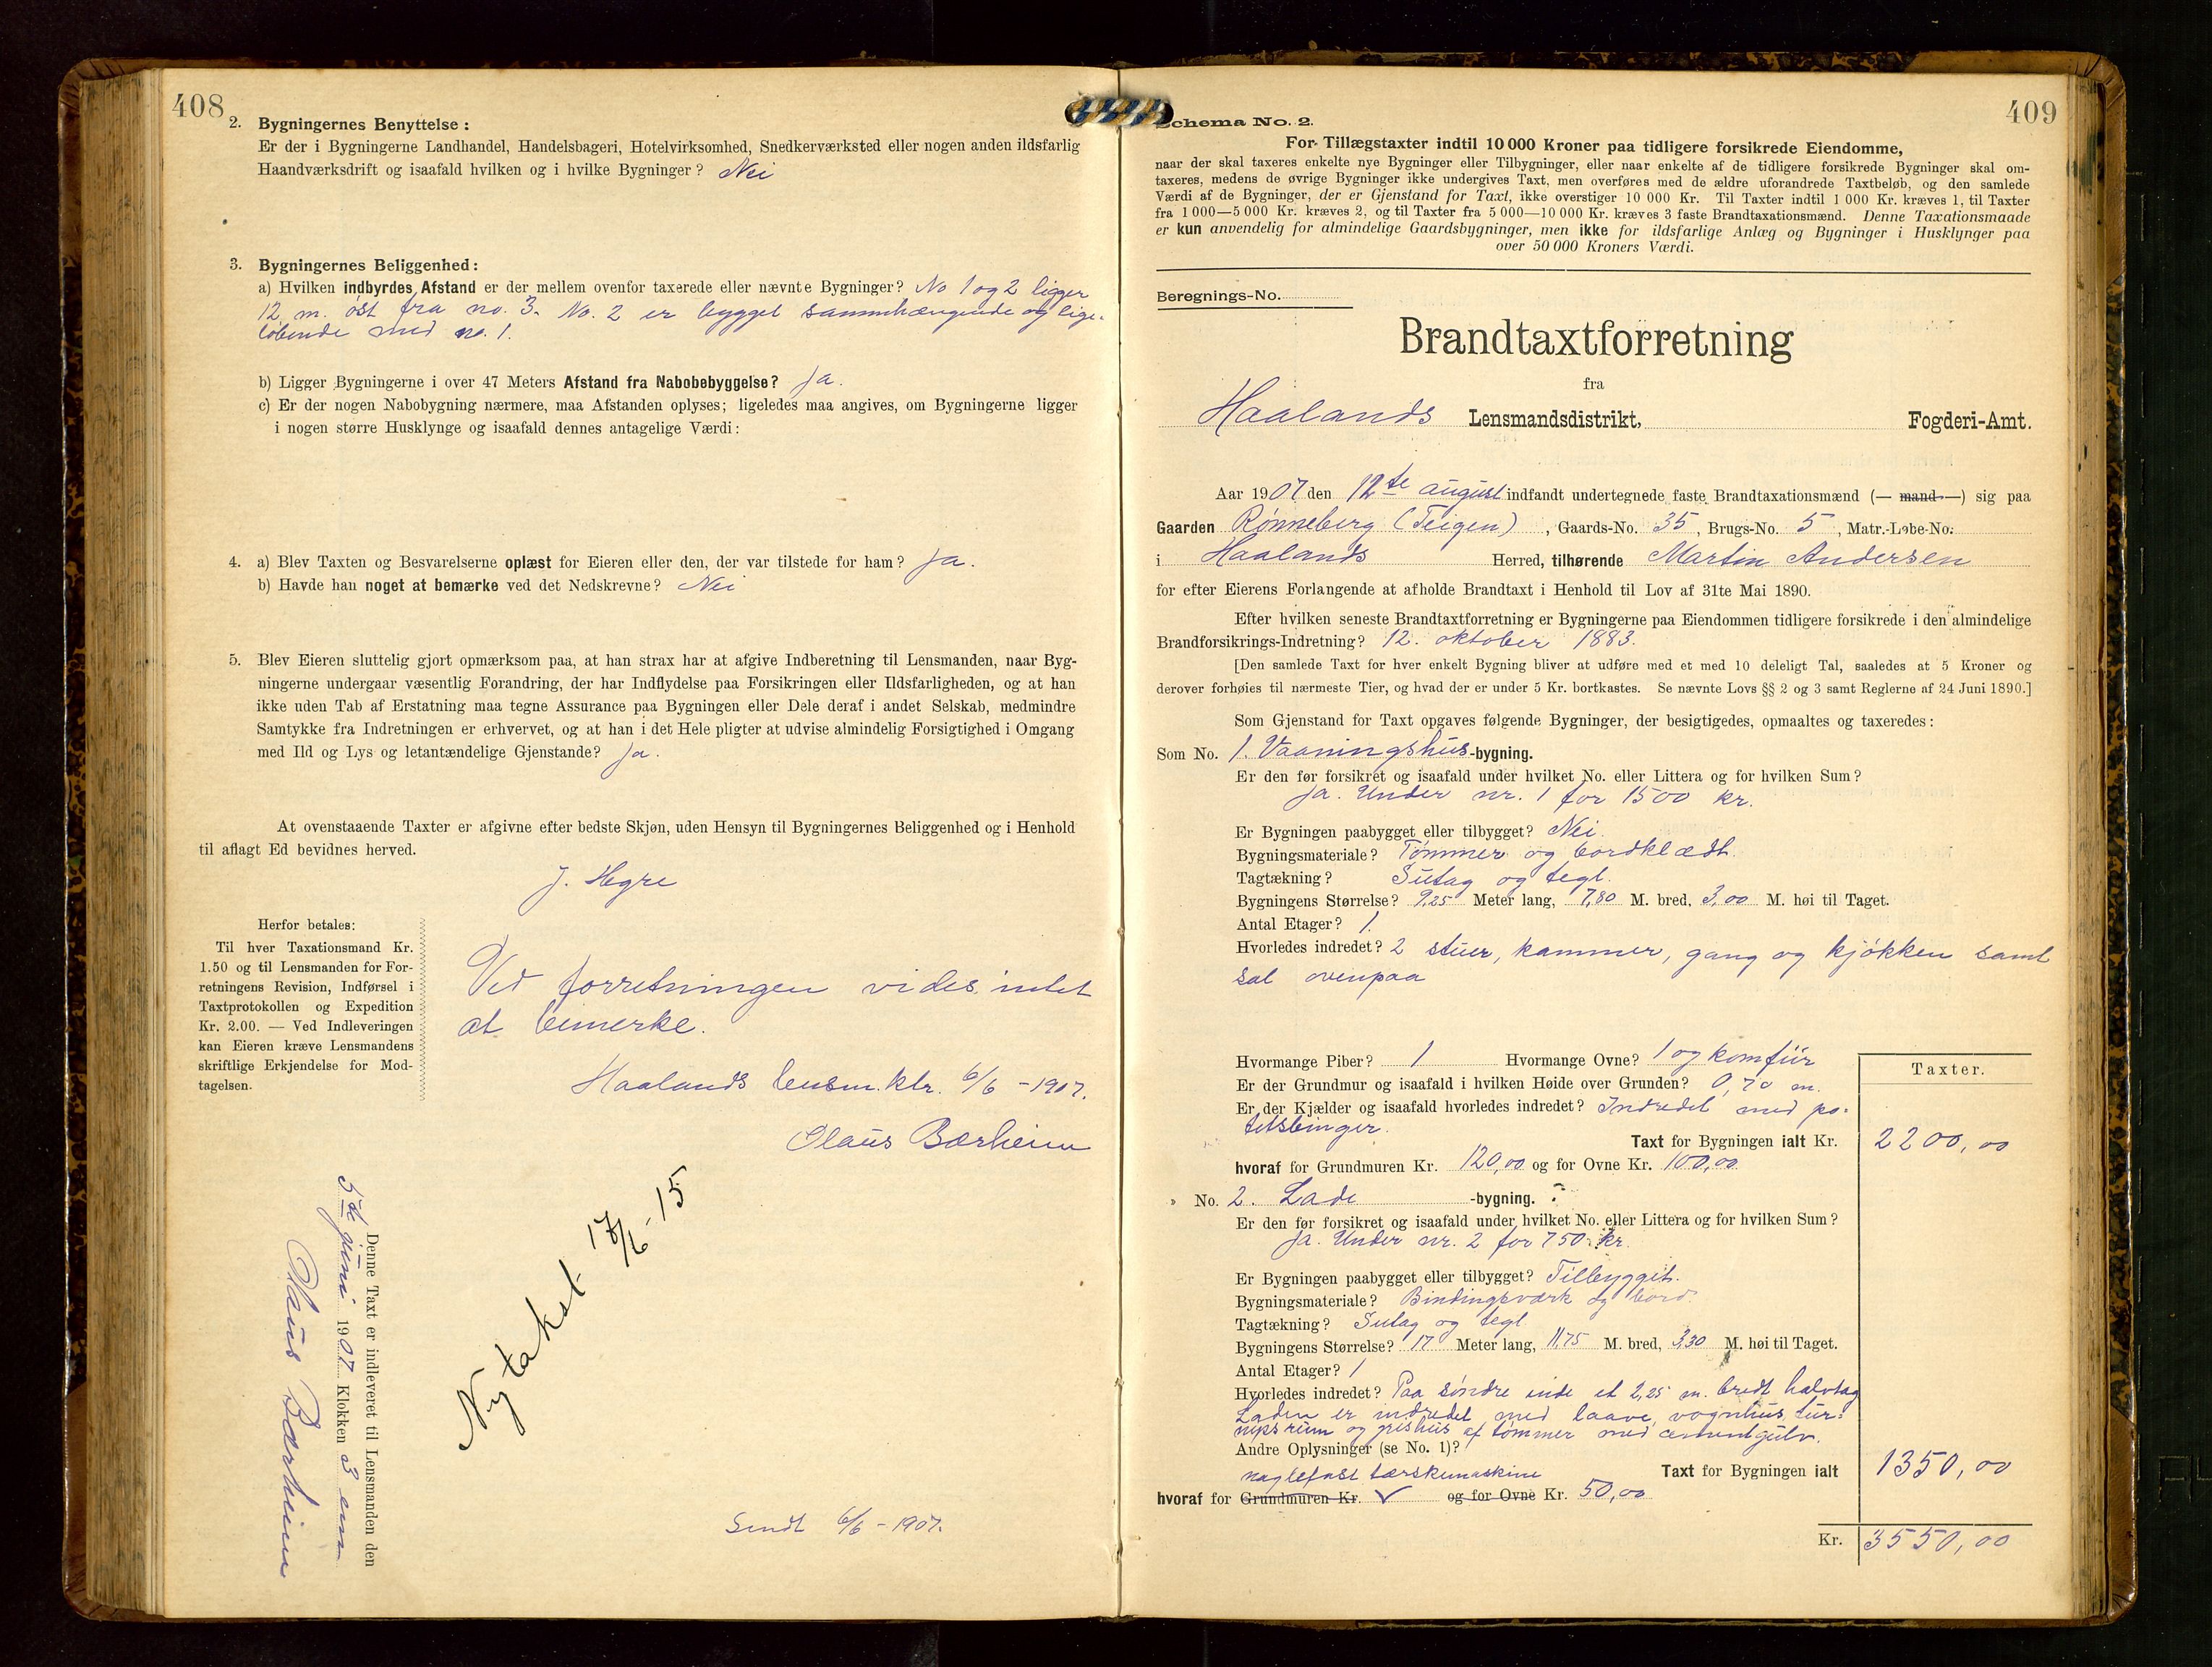 408
2. Bygningernes Benyttelse:
Er der i Bygningerne Landhandel, Handelsbageri, Hotelvirksomhed, Snedkerværksted eller nogen anden ildsfarlig
Haandværksdrift og isaafald hvilken og i hvilke Bygninger? Nei
3. Bygningernes Beliggenhed:
a) Hvilken indbyrdes Afstand er der mellem ovenfor taxerede eller nævnte Bygninger? No 1 og 2 ligger
12 m. øst fra no. 3. No. 2 er bygget sammhængende og lige-
løbende med no. 1.
b) Ligger Bygningerne i over 47 Meters Afstand fra Nabobebyggelse? Ja.
c) Er der nogen Nabobygning nærmere, maa Afstanden oplyses; ligeledes maa angives, om Bygningerne ligger
i nogen større Husklynge og isaafald dennes antagelige Værdi:
4. a) Blev Taxten og Besvarelserne oplæst for Eieren eller den, der var tilstede for ham? Ja.
b) Havde han noget at bemærke ved det Nedskrevne? Nei
5. Blev Eieren sluttelig gjort opmærksom paa, at han strax har at afgive Indberetning til Lensmanden, naar Byg-
ningerne undergaar væsentlig Forandring, der har Indflydelse paa Forsikringen eller Ildsfarligheden, og at han
ikke uden Tab af Erstatning maa tegne Assurance paa Bygningen eller Dele deraf i andet Selskab, medmindre
Samtykke fra Indretningen er erhvervet, og at han i det Hele pligter at udvise almindelig Forsigtighed i Omgang
med Ild og Lys og letantændelige Gjenstande? Ja.
At ovenstaaende Taxter er afgivne efter bedste Skjøn, uden Hensyn til Bygningernes Beliggenhed og i Henhold
til aflagt Ed bevidnes herved.
J. Hegre
Herfor betales:
Til hver Taxationsmand Kr.
1.50 og til Lensmanden for For-
retningens Revision, Indførsel i
Taxtprotokollen og Expedition
Kr. 2.00. — Ved Indleveringen
kan Eieren kræve Lensmandens
skriftlige Erkjendelse for Mod-
tagelsen.
Ved forretningen vides intet
at bemerke.
Haalands lensm.ktr. 6/6 - 1907.
Olaus Bærheim
Denne Taxt er indleveret til Lensmanden den
5te juni 1907 Klokken 3 em
Olaus Bærheim
Nytakst 17/6-15
Sendt 6/6 - 1907.
409
Schema No. 2.
For Tillægstaxter indtil 10 000 Kroner paa tidligere forsikrede Eiendomme,
naar der skal taxeres enkelte nye Bygninger eller Tilbygninger, eller naar enkelte af de tidligere forsikrede Bygninger skal om-
taxeres, medens de øvrige Bygninger ikke undergives Taxt, men overføres med de ældre uforandrede Taxtbeløb, og den samlede
Værdi af de Bygninger, der er Gjenstand for Taxt, ikke overstiger 10 000 Kr. Til Taxter indtil 1 000 Kr. kræves 1, til Taxter
fra 1 000—5 000 Kr. kræves 2, og til Taxter fra 5 000—10 000 Kr. kræves 3 faste Brandtaxationsmænd. Denne Taxationsmaade
er kun anvendelig for almindelige Gaardsbygninger, men ikke for ildsfarlige Anlæg og Bygninger i Husklynger paa
over 50 000 Kroners Værdi.
Beregnings-No.
Brandtaxtforretning
fra
Haalands Lensmandsdistrikt, Fogderi-Amt.
Aar 1907 den 12te august indfandt undertegnede faste Brandtaxationsmænd (— mand —) sig paa
Gaarden Rønneberg (Teigen), Gaards-No. 35, Brugs-No. 5, Matr.-Løbe-No.
i Haalands Herred, tilhørende Martin Andersen
for efter Eierens Forlangende at afholde Brandtaxt i Henhold til Lov af 31te Mai 1890.
Efter hvilken seneste Brandtaxtforretning er Bygningerne paa Eiendommen tidligere forsikrede i den almindelige
Brandforsikrings-Indretning? 12. oktober 1883.
[Den samlede Taxt for hver enkelt Bygning bliver at udføre med et med 10 deleligt Tal, saaledes at 5 Kroner og
derover forhøies til nærmeste Tier, og hvad der er under 5 Kr. bortkastes. Se nævnte Lovs §§ 2 og 3 samt Reglerne af 24 Juni 1890.]
Som Gjenstand for Taxt opgaves følgende Bygninger, der besigtigedes, opmaaltes og taxeredes:
Som No. 1. Vaaningshus-bygning.
Er den før forsikret og isaafald under hvilket No. eller Littera og for hvilken Sum?
Ja. Under nr. 1 for 1500 kr.
Er Bygningen paabygget eller tilbygget? Nei.
Bygningsmateriale? Tømmer og bordklædt.
Tagtækning? Sutag og tegl.
Bygningens Størrelse? 9,25 Meter lang, 7,80 M. bred, 3,00 M. høi til Taget.
Antal Etager? 1.
Hvorledes indredet? 2 stuer, kammer, gang og kjøkken samt
sal ovenpaa
Hvormange Piber? 1 Hvormange Ovne? 1 og komfür
Er der Grundmur og isaafald i hvilken Høide over Grunden? 0,70 m.
Er der Kjælder og isaafald hvorledes indredet? Indredet med po-
tetsbinger.
Taxter.
Taxt for Bygningen ialt Kr. 2200,00
hvoraf for Grundmuren Kr. 120,00 og for Ovne Kr. 100,00
» No. 2. Lade -bygning.
Er den før forsikret og isaafald under hvilket No. eller Littera og for hvilken Sum?
Ja. Under nr. 2 for 750 kr.
Er Bygningen paabygget eller tilbygget? Tilbygget.
Bygningsmateriale? Bindingsværk og bord.
Tagtækning? Sutag og tegl
Bygningens Størrelse? 17 Meter lang, 11,75 M. bred, 3,30 M. høi til Taget.
Antal Etager? 1
Hvorledes indredet? Paa søndre ende et 2,25 m. bredt halvtag
Laden er indredet med laave, vognhus, tur-
nipsrum og grishus af tømmer med cementgulv.
Andre Oplysninger (se No. 1)?
naglefast tærskemaskine Taxt for Bygningen ialt 1350,00
hvoraf for Grundmuren Kr. og for Ovne Kr. 50,00
Kr. 3550,00